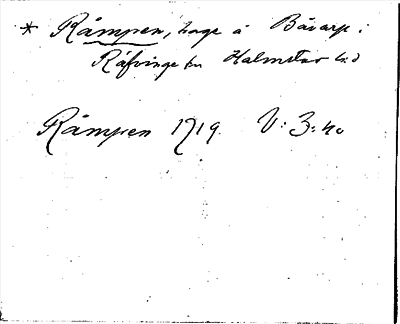 * Råmpen, hage å Båarp i
Räfvinge sn Halmstad hd
Råmpen 1719. V: 3: 40